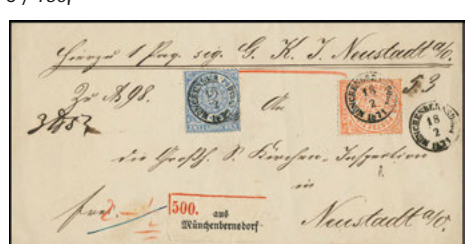 Hierzu 1 Paq. sig. G. K. I. Neustadt a/O.
Zu No 98. An 53
MÜNCHENBERNSDORF
18
2
1871
die Großh. S. Kirchen-Inspection
in
500. aus
Münchenbernsdorf
Neustadt a/O.